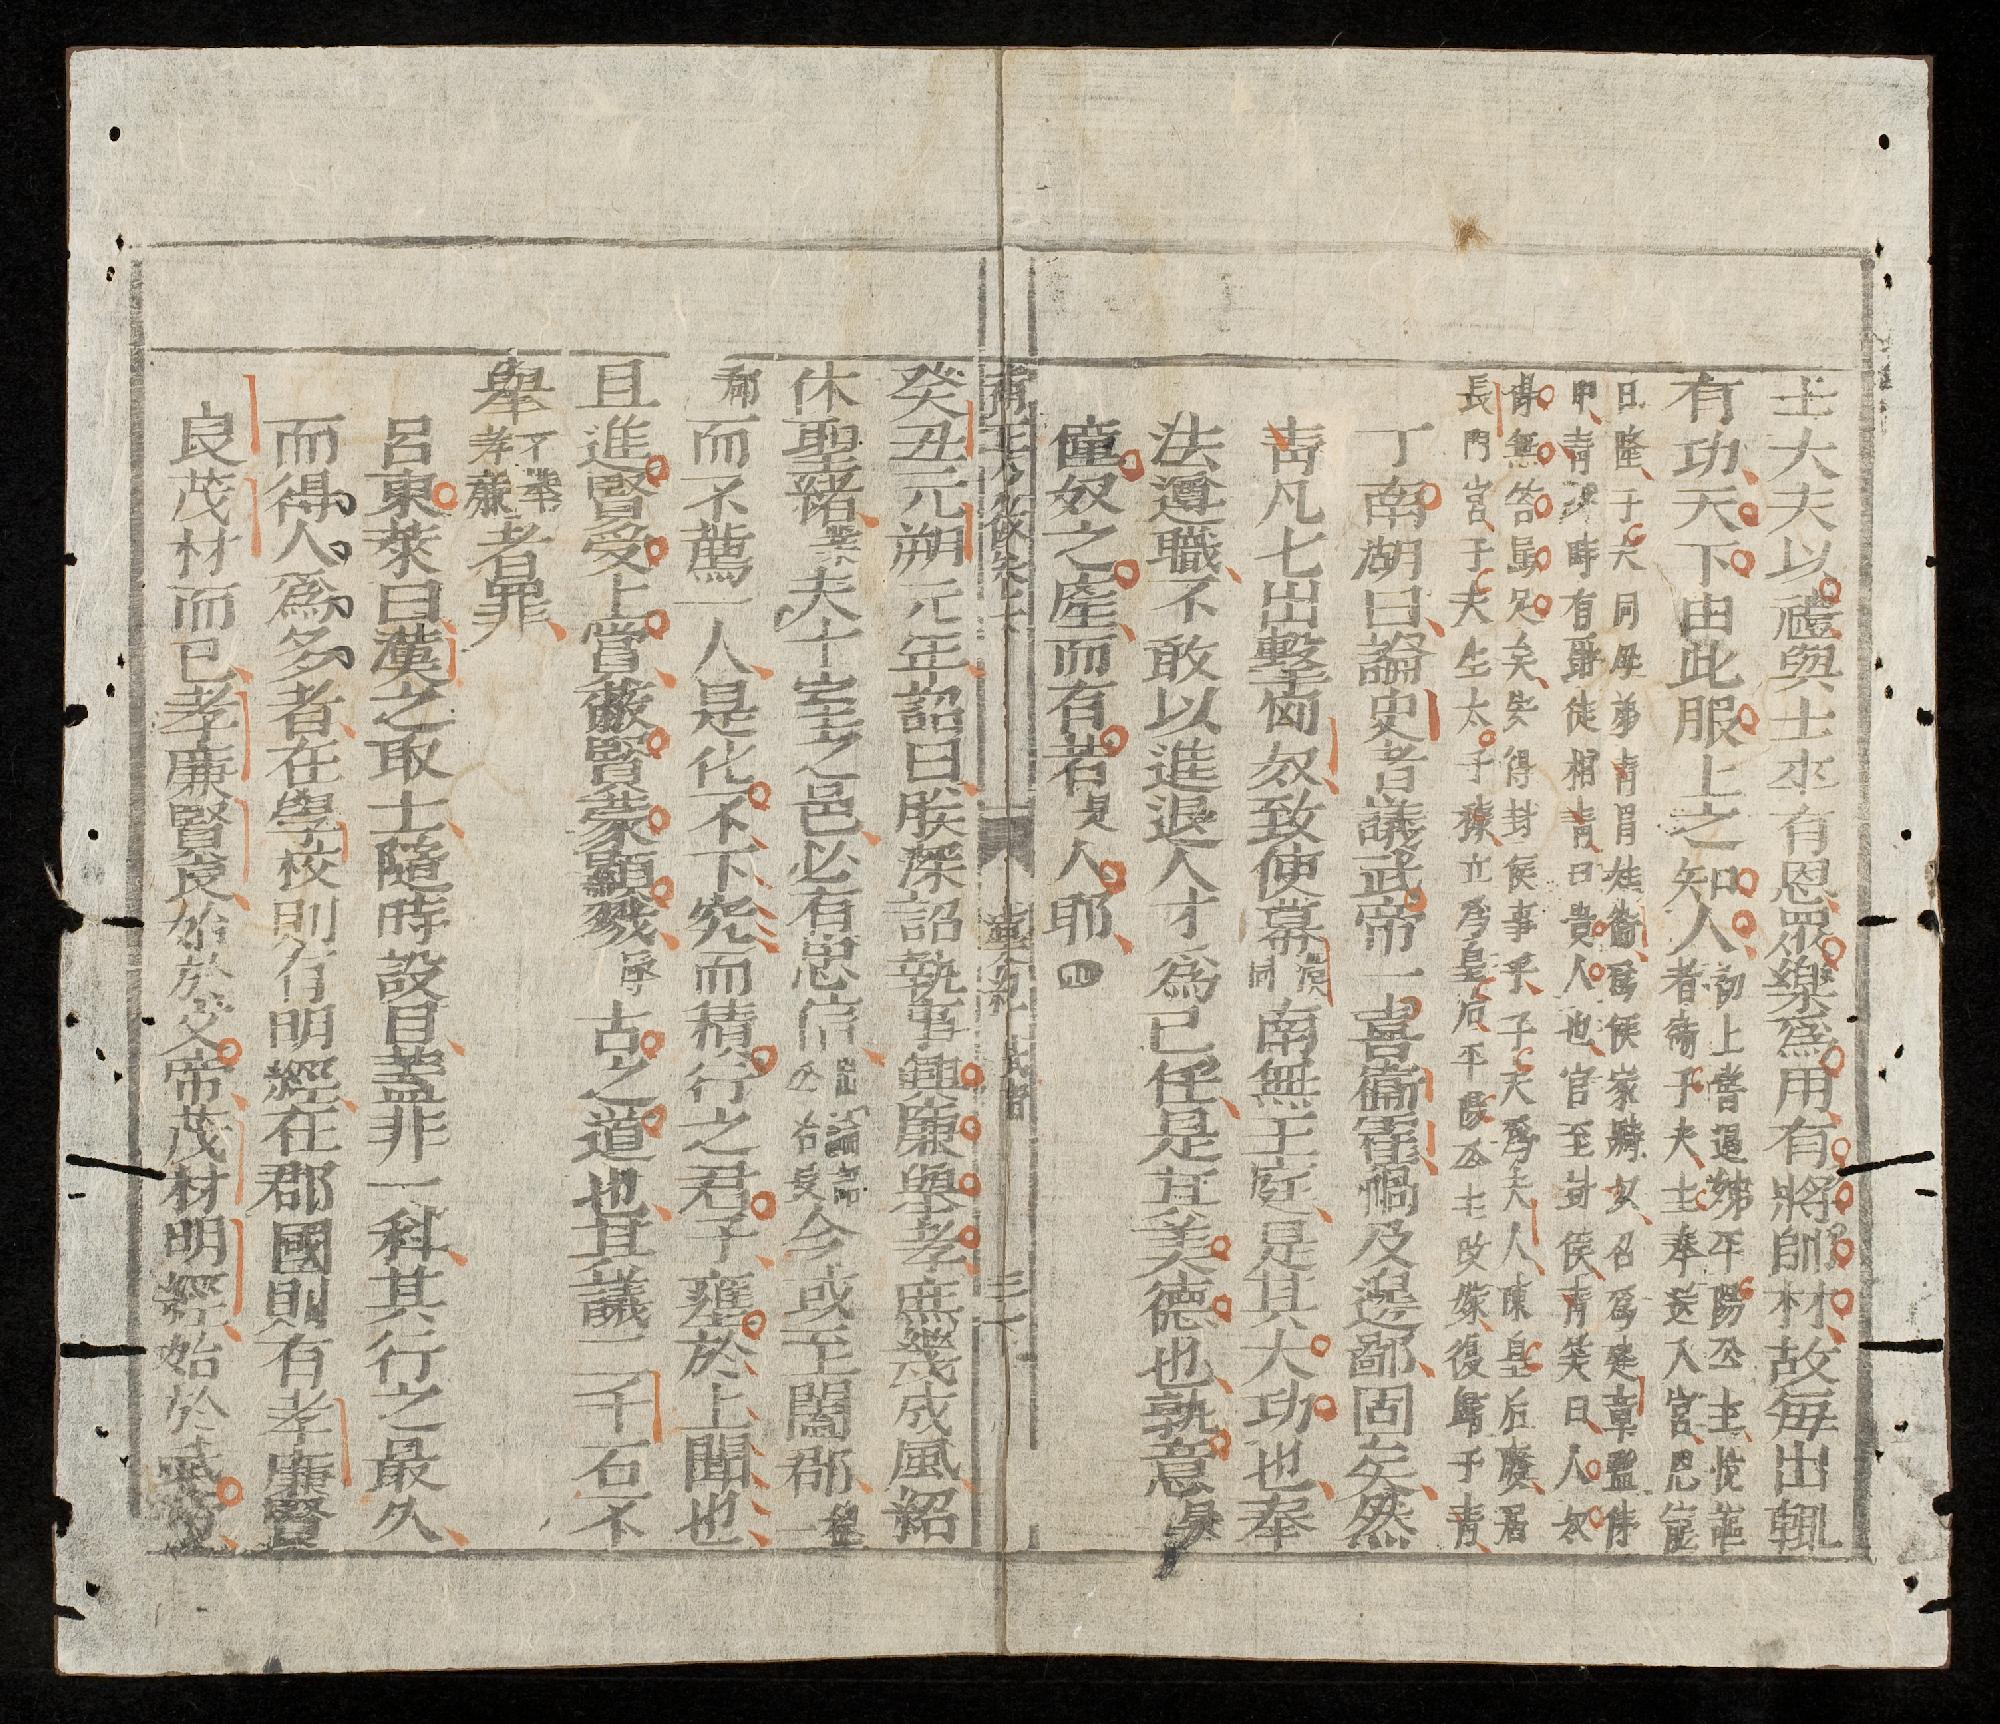 士大夫以禮與士卒有恩眾樂爲用有將帥材故每出輒
有功天下由此服上之知人初上嘗過姊平陽公主悅謳
者衛子夫主奉送入宮恩寵
日隆子夫同母弟青冒姓衛爲侯家騎奴召爲建章監侍
中青 時有 徒相青曰貴人也官至封侯青笑曰人奴
青無笞罵足矣安得封侯事乎子夫爲夫人陳皇后廢居
長門宮子夫生太子據立爲皇后平陽公主改嫁復歸于青
丁南湖曰論史者議武帝一喜衞霍禍及邊鄙固矣然
青凡七出擊匈奴致使幕漠同南無王庭是其大功也奉
法遵職不敢以進退人才爲已任是宜美德也孰意
僮奴之產而有若是人耶
漢紀 武帝
癸丑元朔元年詔曰朕深詔執事興廉舉孝庶幾成風紹
休聖緒夫十室之邑必有忠信論語公冶長今或至闔郡一
郡而不薦一人是化不下究而積行之君子壅於上聞也
且進賢受上賞蔽賢蒙顯戮 古之道也其議二千石不
舉不舉孝廉者罪
呂東萊曰漢之取士隨時設目蓋非一科其行之最久
而得人爲多者在學校則有明經在郡國則有孝廉賢
良茂材而已孝廉賢良始於文帝茂材明經始於武